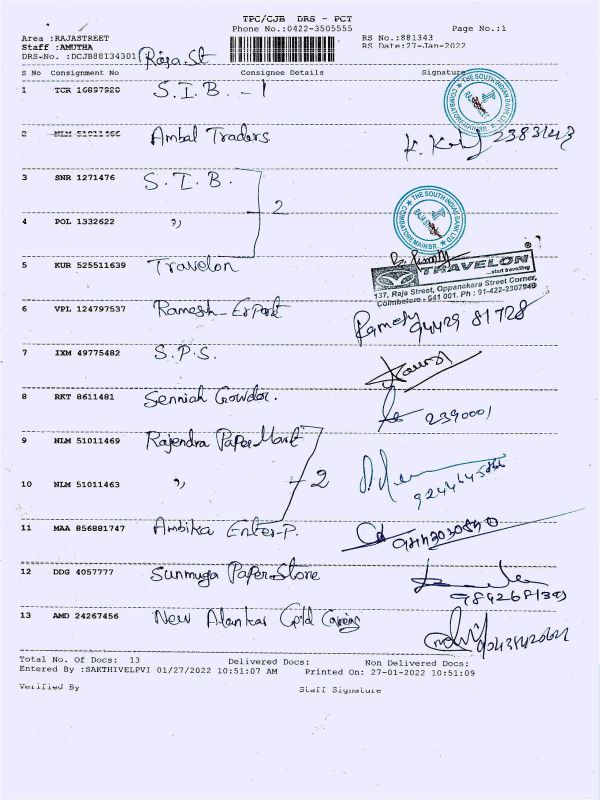 TPC/CJB DRS - PCT
Phone No.:0422-3505555 Page No.:1
Area :RAJASTREET RS No.:881343
Staff :AMUTHA RS Date:27-Jan-2022
DRS-No. :DCJB88134301 Raja.St
S No Consignment No Consignee Details Signature
1 TCR 16897920 S.I.B. - 1
THE SOUTH INDIAN BANK LTD
COIMBATORE MAIN BR.
2 NLM 51011466 Ambal Traders 2383143
3 SNR 1271476 S.I.B.
2
THE SOUTH INDIAN BANK LTD
COIMBATORE MAIN BR.
4 POL 1332622 "
5 KUR 525511639 Travelon
TRAVELON
...start travelling
137, Raja Street, Oppanakara Street Corner,
Coimbatore - 641 001. Ph : 91-422-2307949
6 VPL 124797537 Ramesh Export Ramesh 94429 81728
7 IXM 49775482 S.P.S.
8 RKT 8611481 Senniah Gowdor. 2390001
9 NLM 51011469 Rajendra Paper Mart
2
10 NLM 51011463 "
11 MAA 856881747 Ambika Enter-P.
12 DDG 4057777 Sunmuga Paper Store
13 AMD 24267456 New Alankar Gold Covering
Total No. Of Docs: 13 Delivered Docs: Non Delivered Docs:
Entered By :SAKTHIVELPVI 01/27/2022 10:51:07 AM Printed On: 27-01-2022 10:51:09
Verified By Staff Signature